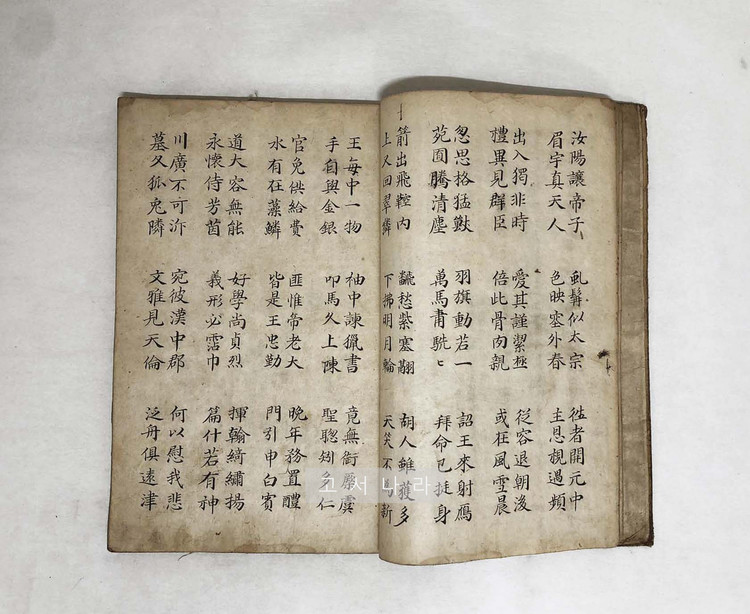 汝陽讓帝子
眉宇真天人
虬髯似太宗
色映塞外春
徃者開元中
主恩視遇頻
出入獨非時
禮異見群臣
愛其謹潔極
倍此骨肉親
從容退朝後
或在風雪晨
忽思格猛獸
苑囿騰清塵
羽旗動若一
萬馬肅駪〻
詔王來射鴈
拜命已挺身
箭出飛鞚內
上又回翠麟
紫塞翮
下拂明月輪
胡人雖獲多
天笑不 新
王每中一物
手自與金銀
袖中諫獵書
叩馬久上陳
竟無銜 虞
聖聦矧多仁
官免供給費
水有在藻鱗
匪惟帝老大
皆是王忠勤
晚年務置醴
門引申白賓
道大容無能
永懷侍芳茵
好學尚貞烈
義形必霑巾
揮翰綺繡揚
篇什若有神
川廣不可泝
墓久狐兎隣
宛彼漢中郡
文雅見天倫
何以慰我悲
泛舟俱遠津
고서나라